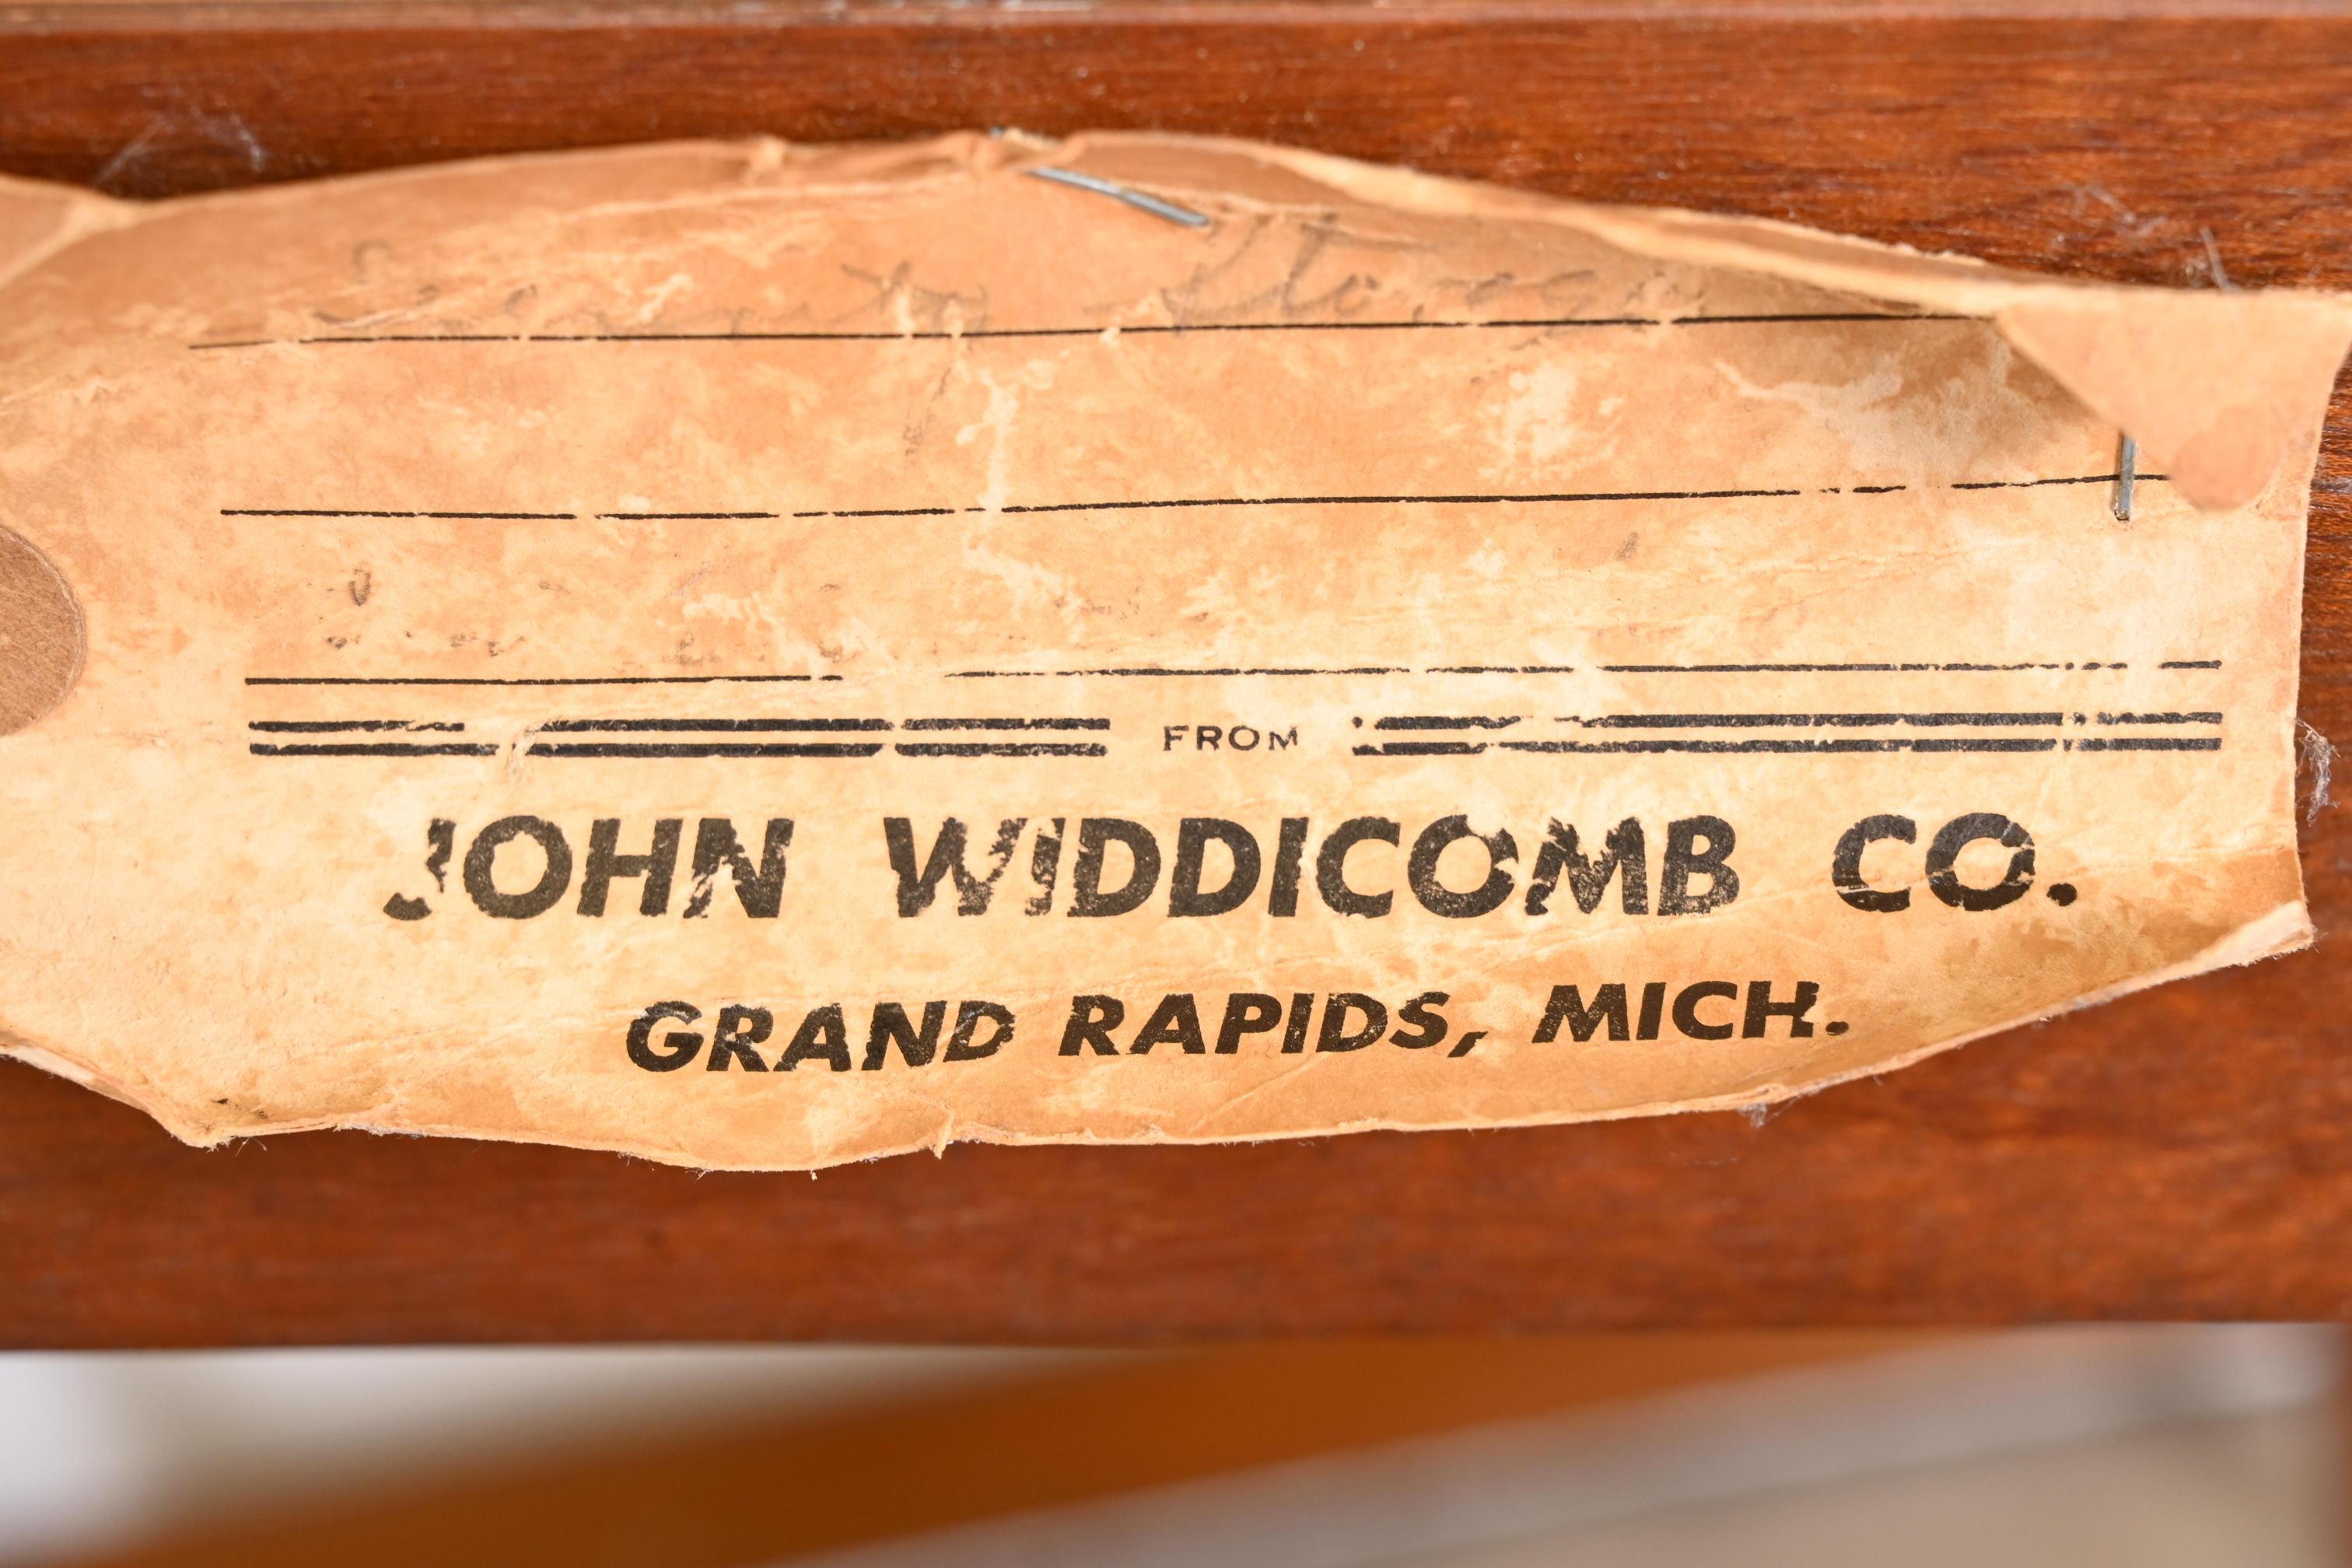 Storage
FROM
JOHN WIDDICOMB CO.
GRAND RAPIDS, MICH.